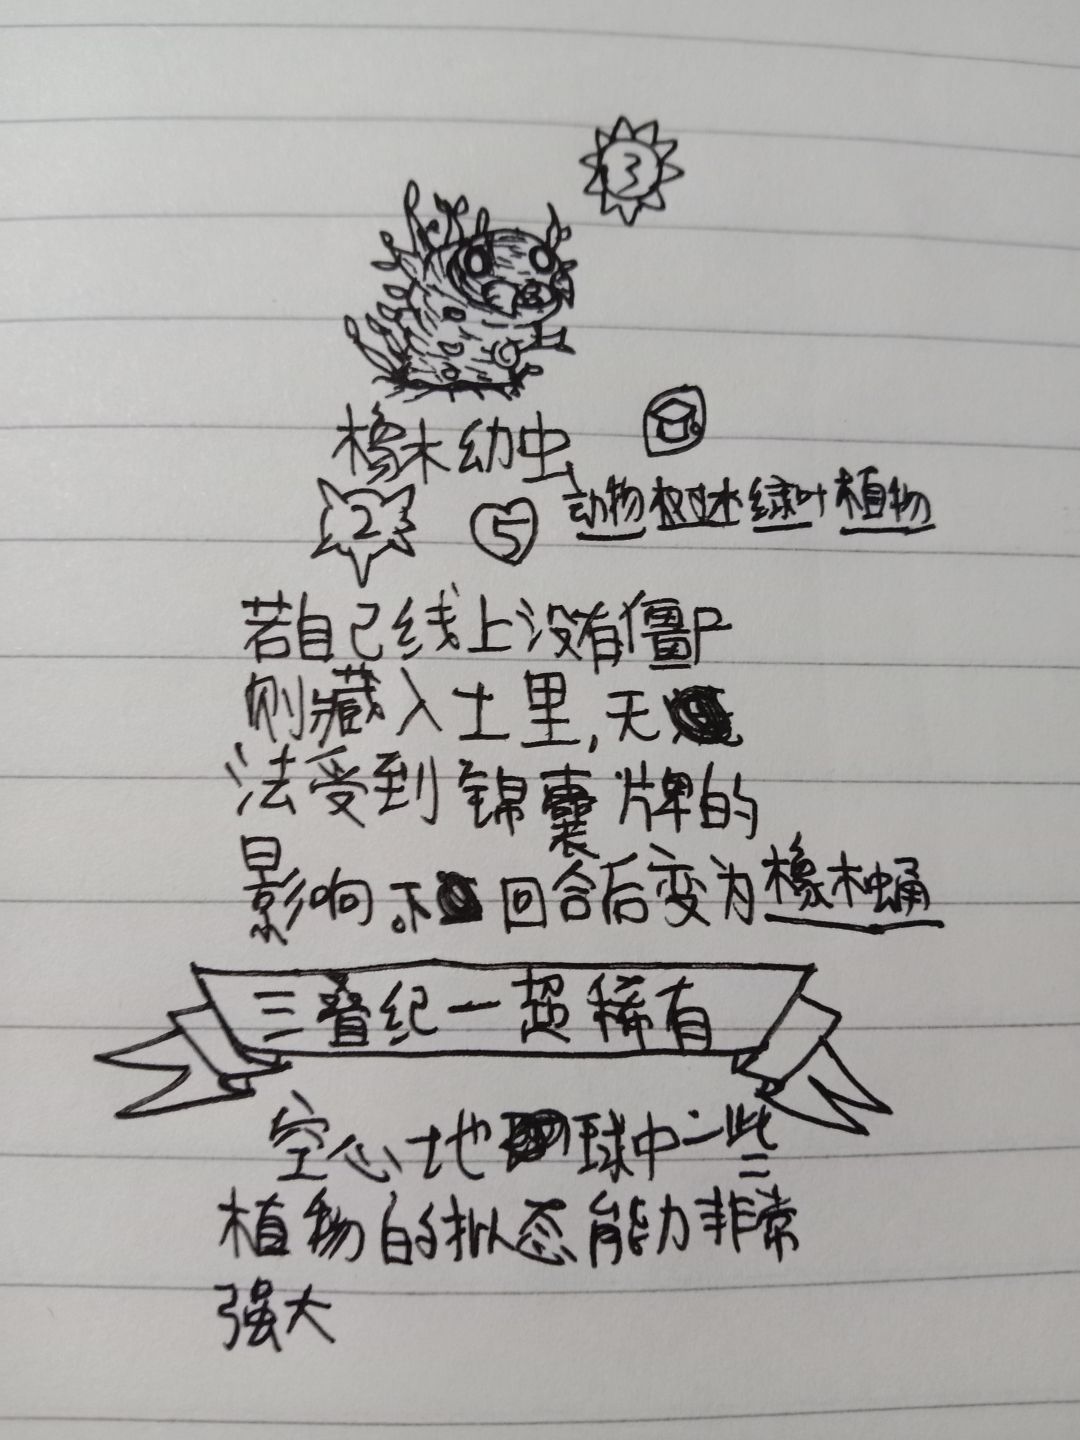 3
橡木幼虫
2 5 动物树迷绿叶植物
若自己线上没有僵尸
则藏入土里,无
法受到锦囊牌的
影响。下回合后变为橡木蛹
三叠纪一超稀有
空心地球中一些
植物的拟态能力非常
强大